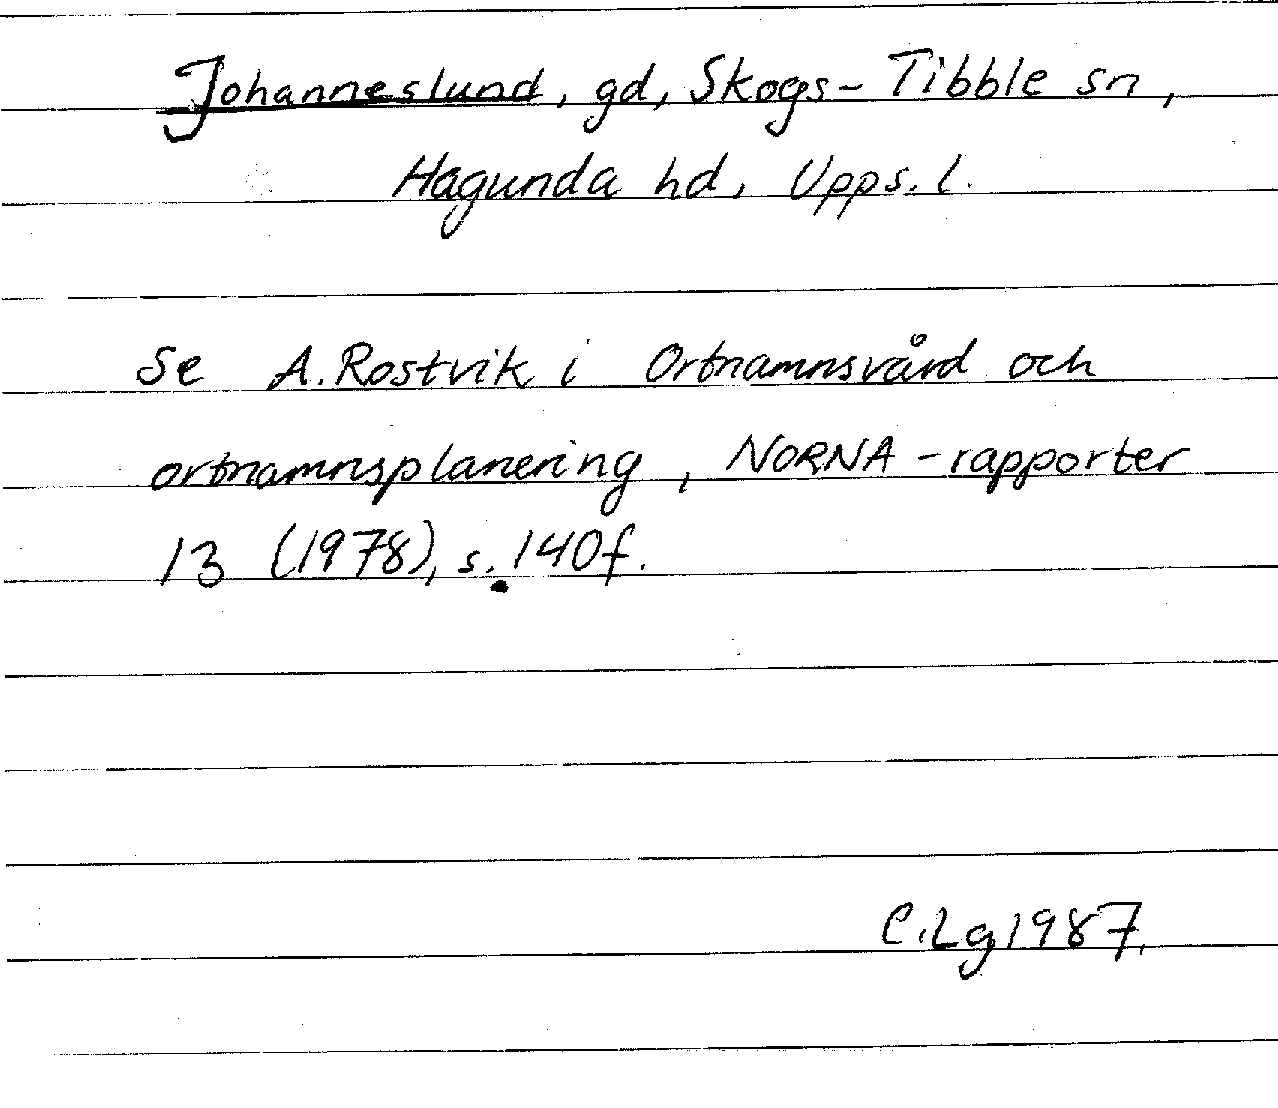 Johanneslund, gd, Skogs-Tibble sn,
Hagunda hd, Upps. l.
Se A. Rostvik i Ortnamnsvård och
ortnamnsplanering, NORNA-rapporter
13 (1978), s. 140f.
C.Lg 1987.